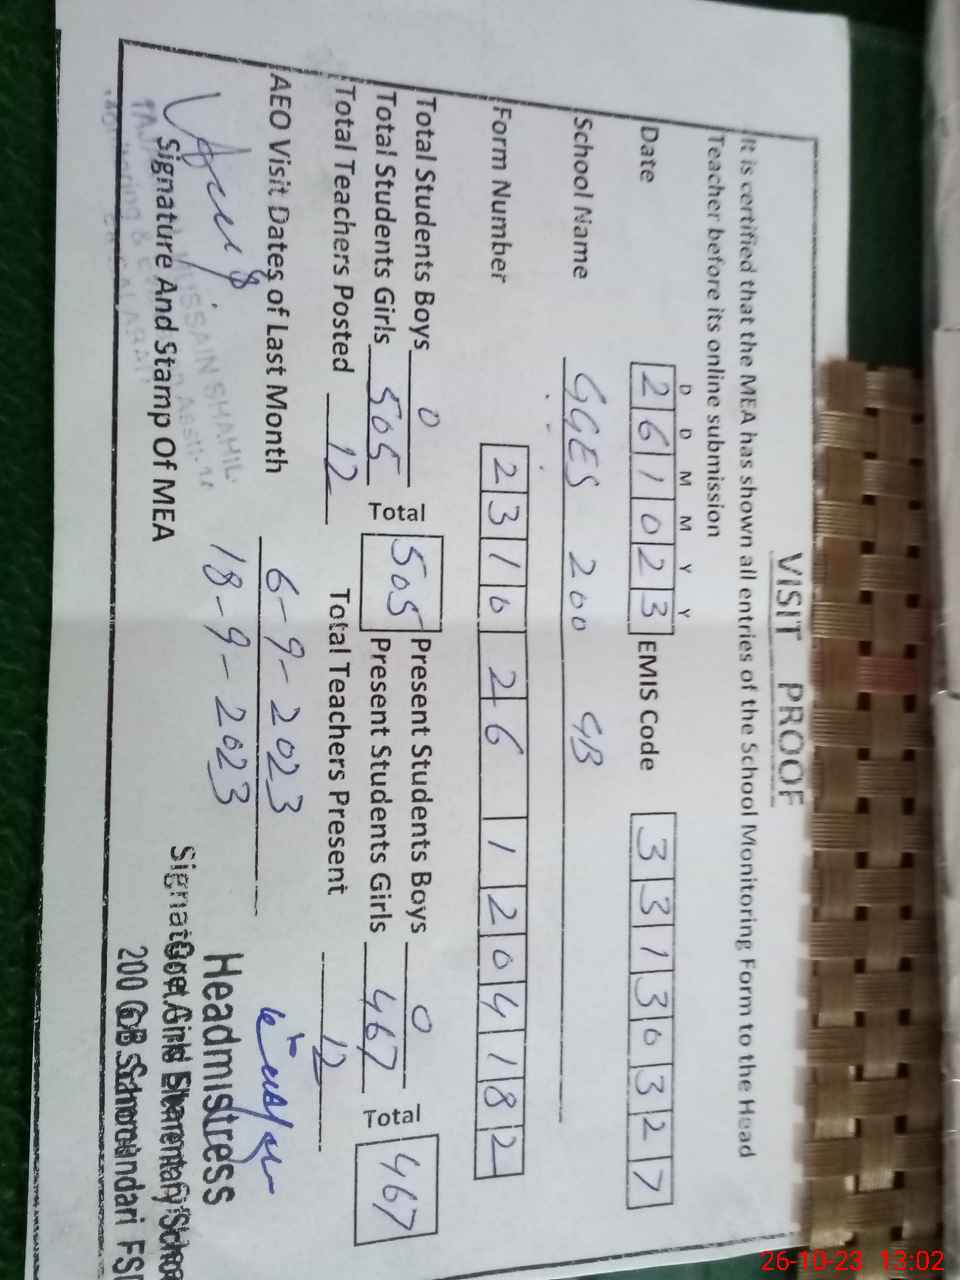 VISIT PROOF
It is certified that the MEA has shown all entries of the School Monitoring Form to the Head
Teacher before its online submission
D D M M Y Y
Date 261023 EMIS Code 33130327
School Name GGES 200 GB
Form Number 231026 1204182
Total Students Boys 0 Present Students Boys 0
Total Students Girls 505 Total 505 Present Students Girls 467 Total 467
Total Teachers Posted 12 Total Teachers Present 12
AEO Visit Dates of Last Month 6-9-2023
18-9-2023
Signature And Stamp Of MEA
HUSSAIN SHAHIL
Headmistress
Govt Girls Elementary School
200 GB Samundari
26-10-23 13:02